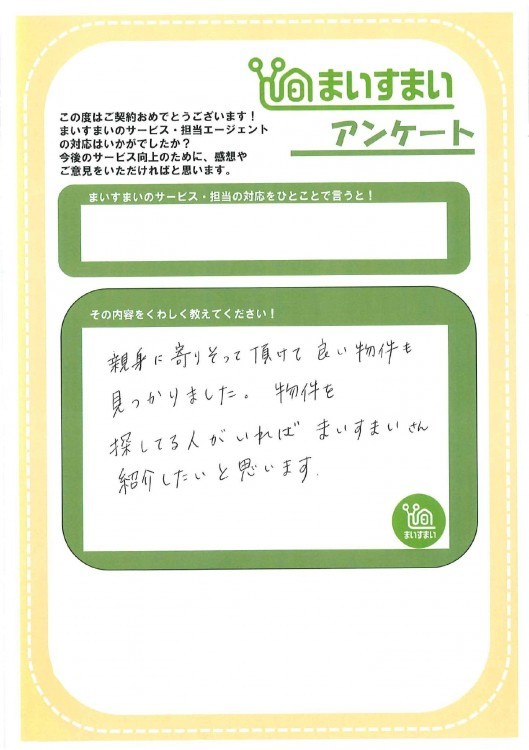 まいすまい
アンケート
この度はご契約おめでとうございます！
まいすまいのサービス・担当エージェント
の対応はいかがでしたか？
今後のサービス向上のために、感想や
ご意見をいただければと思います。
まいすまいのサービス・担当の対応をひとことで言うと！
その内容をくわしく教えてください！
親身に寄りそって頂けて良い物件も
見つかりました。物件を
探してる人がいればまいすまいさん
紹介したいと思います.
まいすまい